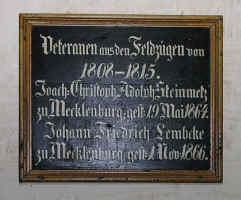 Veteranen aus den Feldzügen von
1808-1815.
Joach. Christoph Adolph Steinmetz
zu Mecklenburg, gest. 19 Mai 1864.
Johann Friedrich Lembcke
zu Mecklenburg, gest. 1 Nov. 1866.